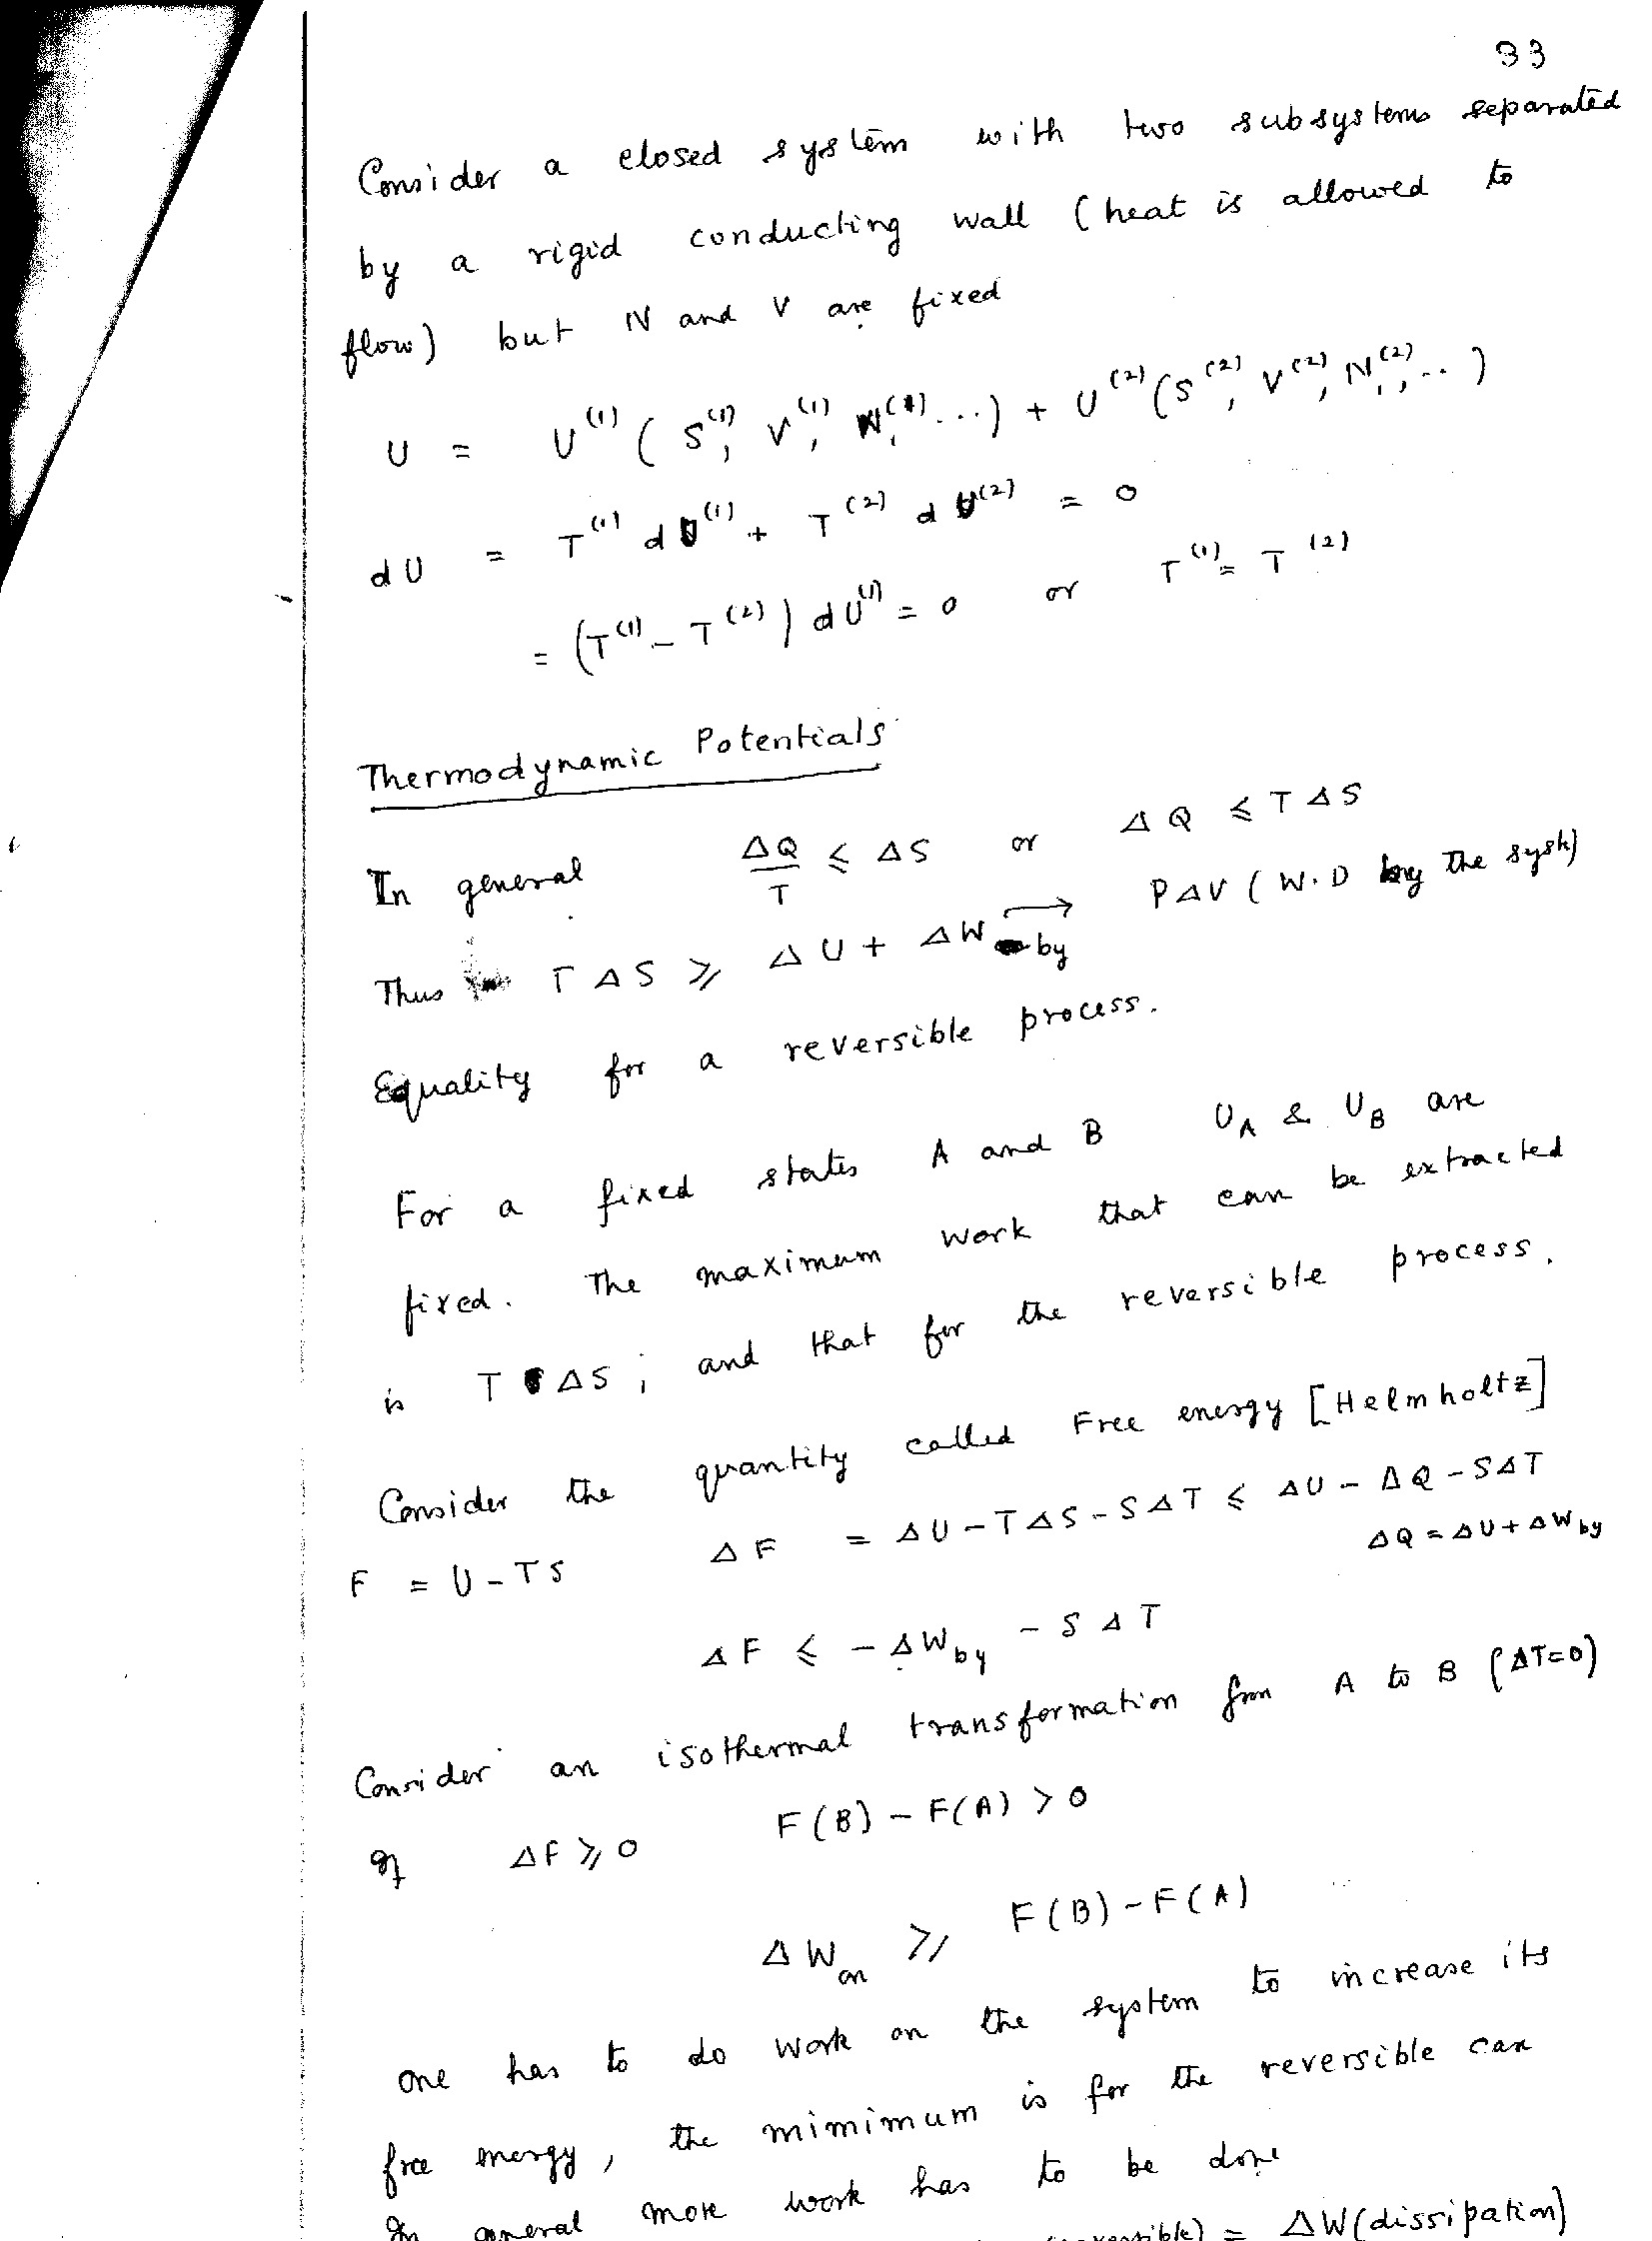 33
Consider a closed system with two subsystems separated
by a rigid conducting wall (heat is allowed to
flow) but N and V are fixed
U = U⁽¹⁾ ( S⁽¹⁾, V⁽¹⁾, N⁽¹⁾, ...) + U⁽²⁾ (S⁽²⁾, V⁽²⁾, N⁽²⁾, ...)
dU = T⁽¹⁾ dU⁽¹⁾ + T⁽²⁾ dU⁽²⁾ = 0
= (T⁽¹⁾ - T⁽²⁾) dU⁽¹⁾ = 0 or T⁽¹⁾ = T⁽²⁾
Thermodynamic Potentials
In general ΔQ/T ⩽ ΔS or ΔQ ⩽ TΔS
Thus TΔS ⩾ ΔU + ΔW by → PΔV (W.D by the syst)
Equality for a reversible process.
For a fixed states A and B U_A & U_B are
fixed. The maximum work that can be extracted
is T ΔS; and that for the reversible process.
Consider the quantity called Free energy [Helmholtz]
F = U - TS ΔF = ΔU - TΔS - SΔT ⩽ ΔU - ΔQ - SΔT
ΔQ = ΔU + ΔW by
ΔF ⩽ - ΔW by - SΔT
Consider an isothermal transformation from A to B (ΔT=0)
If ΔF ⩾ 0 F(B) - F(A) > 0
ΔW on ⩾ F(B) - F(A)
one has to do work on the system to increase its
free energy, the mimimum is for the reversible case
In general more work has to be done
(reversible) = ΔW (dissipation)